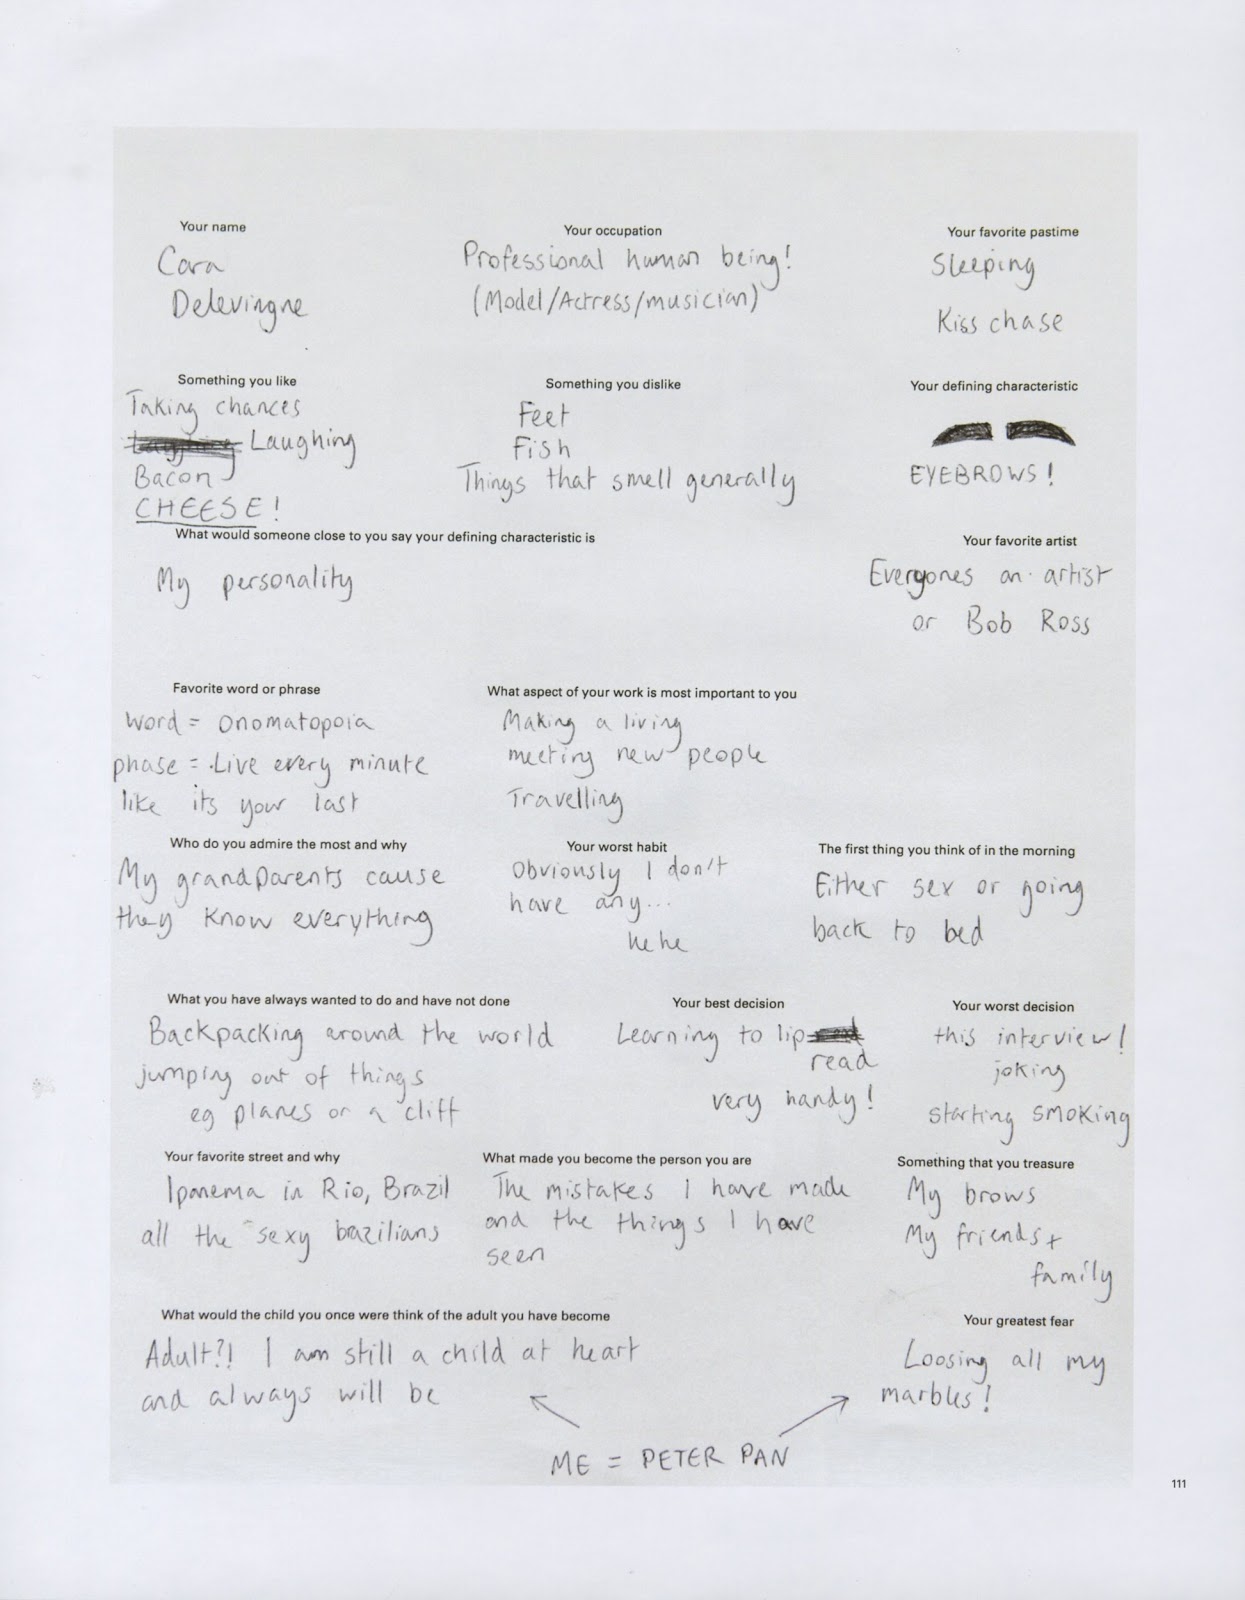 Your name
Cara
Delevingne
Your occupation
Professional human being!
(Model/Actress/musician)
Your favorite pastime
Sleeping
Kiss chase
Something you like
Taking chances
Laughing
Bacon
CHEESE!
Something you dislike
Feet
Fish
Things that smell generally
Your defining characteristic
EYEBROWS!
What would someone close to you say your defining characteristic is
My personality
Your favorite artist
Everyones an artist
or Bob Ross
Favorite word or phrase
word = onomatopoia
phase = Live every minute
like its your last
What aspect of your work is most important to you
Making a living
meeting new people
Travelling
Who do you admire the most and why
My grandparents cause
they know everything
Your worst habit
Obviously I don't
have any...
hehe
The first thing you think of in the morning
Either sex or going
back to bed
What you have always wanted to do and have not done
Backpacking around the world
jumping out of things
eg planes or a cliff
Your best decision
Learning to lip
read
very handy!
Your worst decision
this interview!
joking
starting smoking
Your favorite street and why
Ipanema in Rio, Brazil
all the sexy brazilians
What made you become the person you are
The mistakes I have made
and the things I have
seen
Something that you treasure
My brows
My friends +
family
What would the child you once were think of the adult you have become
Adult?! I am still a child at heart
and always will be
Your greatest fear
Loosing all my
marbles!
ME = PETER PAN
111